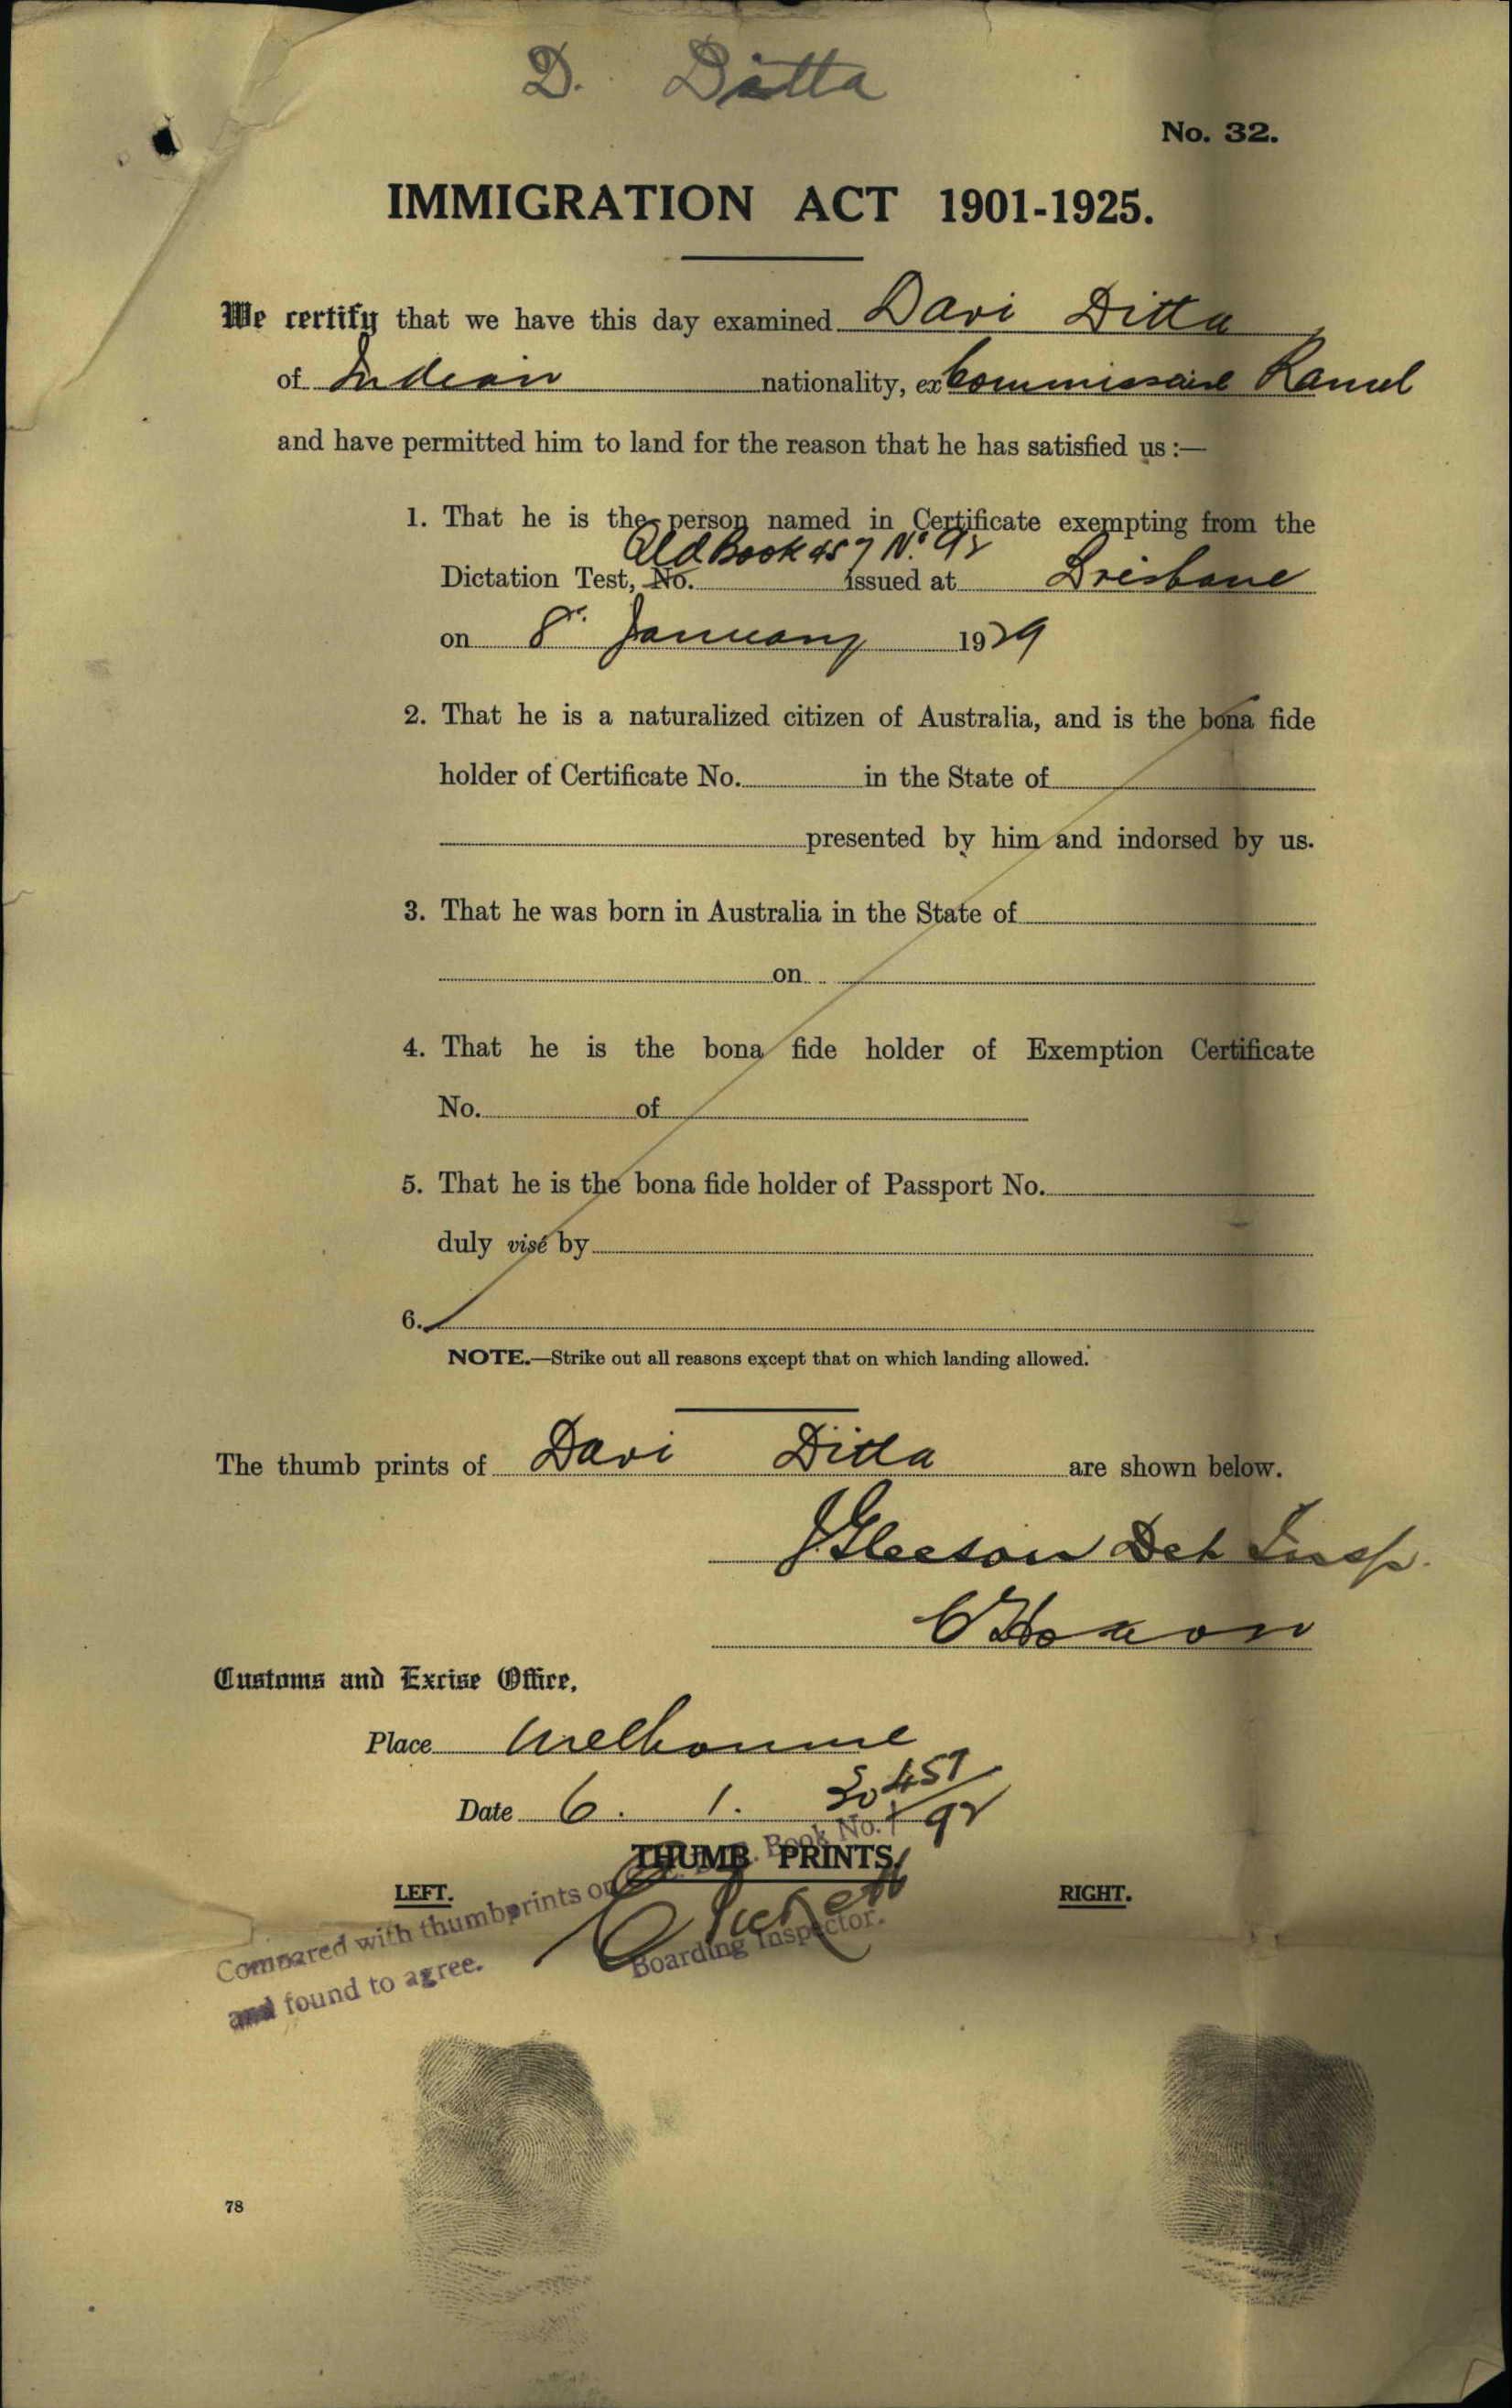 D. Ditta
No. 32.
IMMIGRATION ACT 1901-1925.
We certify that we have this day examined Davi Ditta
of Indian nationality, ex Commissaire Ramel
and have permitted him to land for the reason that he has satisfied us :—
1. That he is the person named in Certificate exempting from the
Old Book 457 No. 92
Dictation Test, No. issued at Brisbane
on 8 January 1929
2. That he is a naturalized citizen of Australia, and is the bona fide
holder of Certificate No. in the State of
presented by him and indorsed by us.
3. That he was born in Australia in the State of
on
4. That he is the bona fide holder of Exemption Certificate
No. of
5. That he is the bona fide holder of Passport No.
duly visé by
6.
NOTE.—Strike out all reasons except that on which landing allowed.
The thumb prints of Davi Ditta are shown below.
J Gleeson Det Insp.
Customs and Excise Office,
Place Melbourne
Date 6. 1. 30
457/92
THUMB PRINTS.
LEFT. RIGHT.
Compared with thumbprints on Book No.
and found to agree.
Boarding Inspector.
78